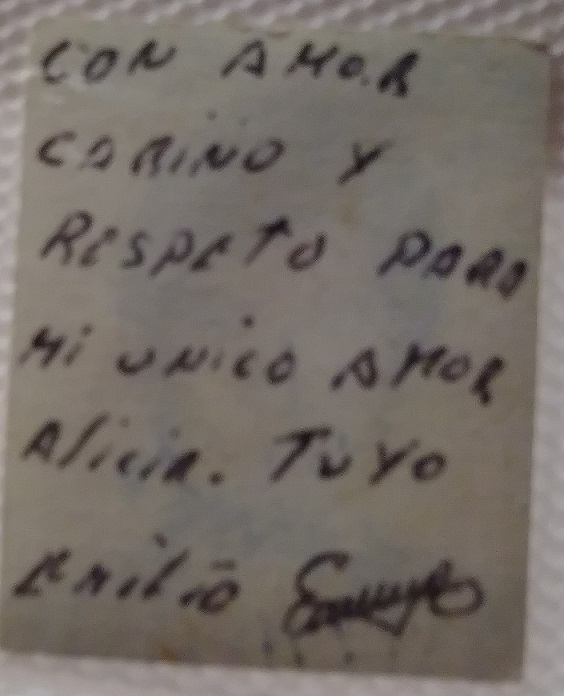 CON AMOR
CARIÑO Y
RESPETO PARA
Mi UNiCO AMOR
Alicia. TUYO
Emilio